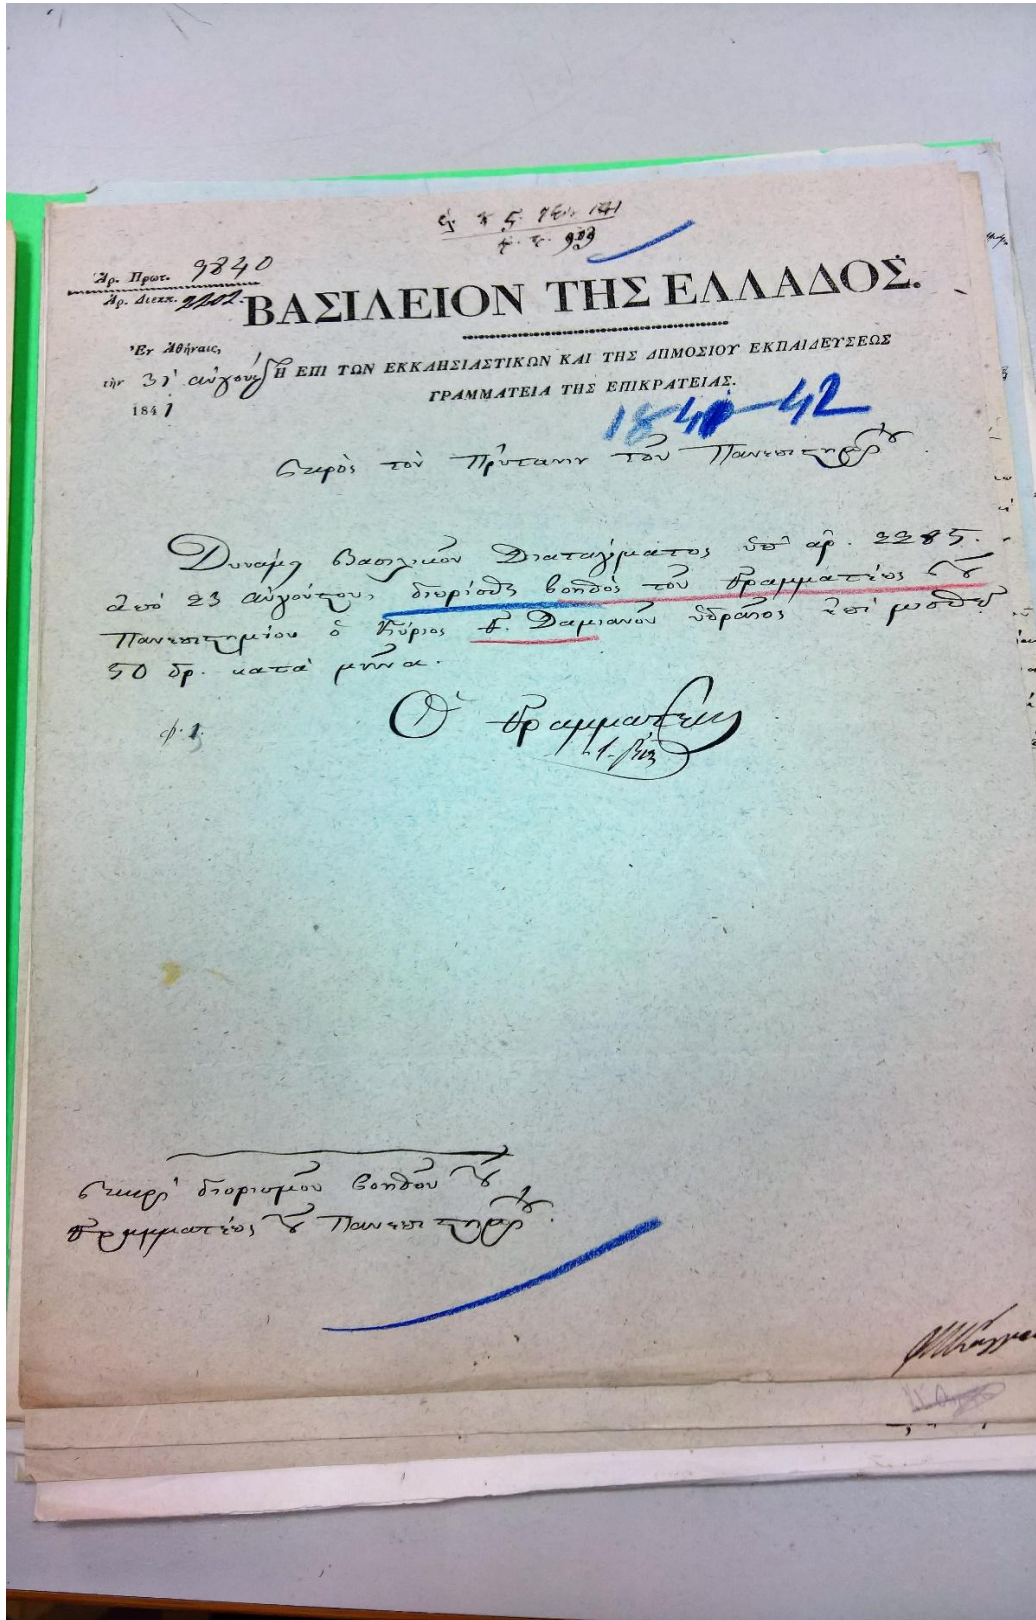 Ἀρ. Πρωτ. 9840
Ἀρ. Διεκπ. 9202.
ΒΑΣΙΛΕΙΟΝ ΤΗΣ ΕΛΛΑΔΟΣ.
Ἐν Ἀθήναις,
τὴν 31 αὐγούστου
1841
Η ΕΠΙ ΤΩΝ ΕΚΚΛΗΣΙΑΣΤΙΚΩΝ ΚΑΙ ΤΗΣ ΔΗΜΟΣΙΟΥ ΕΚΠΑΙΔΕΥΣΕΩΣ
ΓΡΑΜΜΑΤΕΙΑ ΤΗΣ ΕΠΙΚΡΑΤΕΙΑΣ.
1841-42
πρὸς τὸν Πρύτανιν τοῦ Πανεπιστημίου
Δυνάμει βασιλικοῦ Διατάγματος ὑπ' ἀρ. 2285.
ἀπὸ 23 αὐγούστου, διωρίσθη βοηθὸς τοῦ Γραμματέως τοῦ
Πανεπιστημίου ὁ Κύριος Γ. Δαμιανοῦ ὑδραῖος ἐπὶ μισθῷ
50 δρ. κατὰ μῆνα.
Ὁ Γραμματεὺς
περὶ διορισμοῦ βοηθοῦ τοῦ
Γραμματέως τοῦ Πανεπιστημίου.